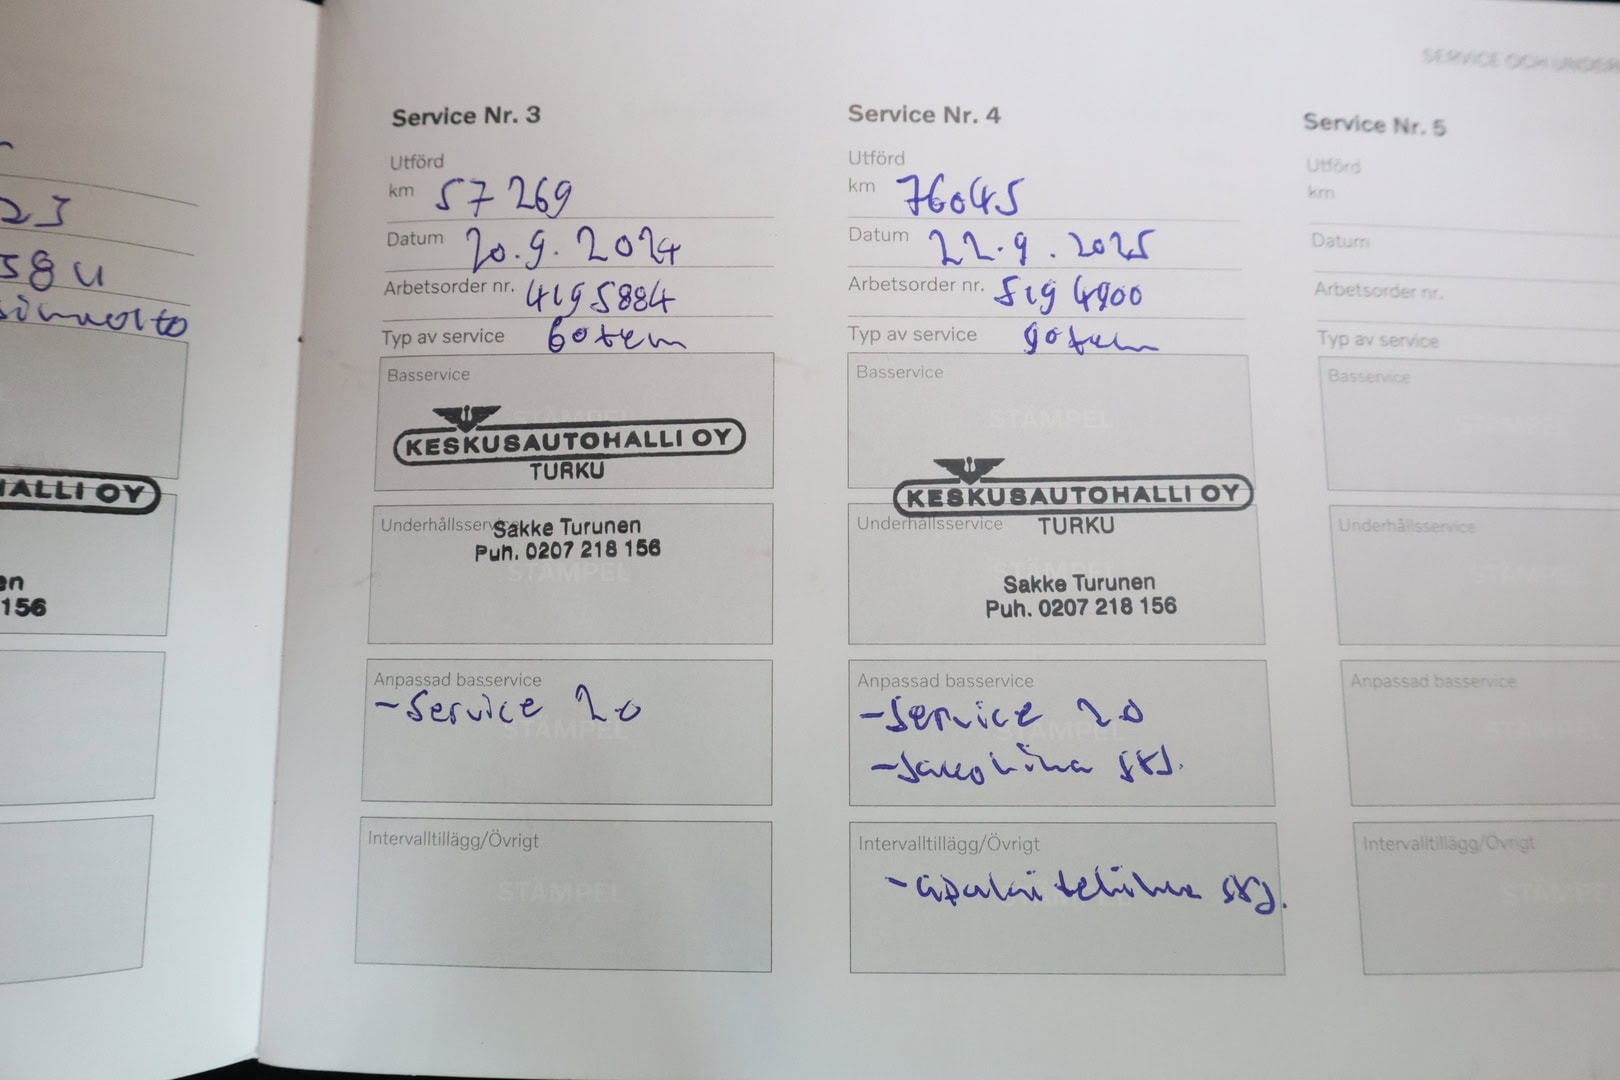 23
58 u
HALLI OY
en
156
SERVICE OCH UNDER
Service Nr. 3
Utförd
km 57 269
Datum 20.9.2024
Arbetsorder nr. 4195884
Typ av service 60 tkm
Basservice
STÄMPEL
KESKUSAUTOHALLI OY
TURKU
Underhållsservice
Sakke Turunen
Puh. 0207 218 156
STÄMPEL
Anpassad basservice
-Service 20
STÄMPEL
Intervalltillägg/Övrigt
STÄMPEL
Service Nr. 4
Utförd
km 76045
Datum 22.9.2025
Arbetsorder nr. 5194900
Typ av service 90 tkm
Basservice
STÄMPEL
KESKUSAUTOHALLI OY
Underhållsservice
TURKU
STÄMPEL
Sakke Turunen
Puh. 0207 218 156
Anpassad basservice
-Service 20
STÄMPEL
Intervalltillägg/Övrigt
STÄMPEL
Service Nr. 5
Utförd
km
Datum
Arbetsorder nr.
Typ av service
Basservice
STÄMPEL
Underhållsservice
STÄMPEL
Anpassad basservice
STÄMPEL
Intervalltillägg/Övrigt
STÄMPEL